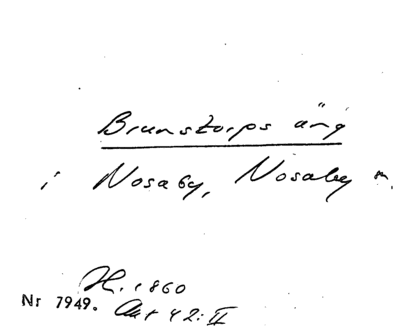 Brunstorps äng
i Nosaby, Nosaby sn.
H. 1860
Nr 7949. Akt 42:II